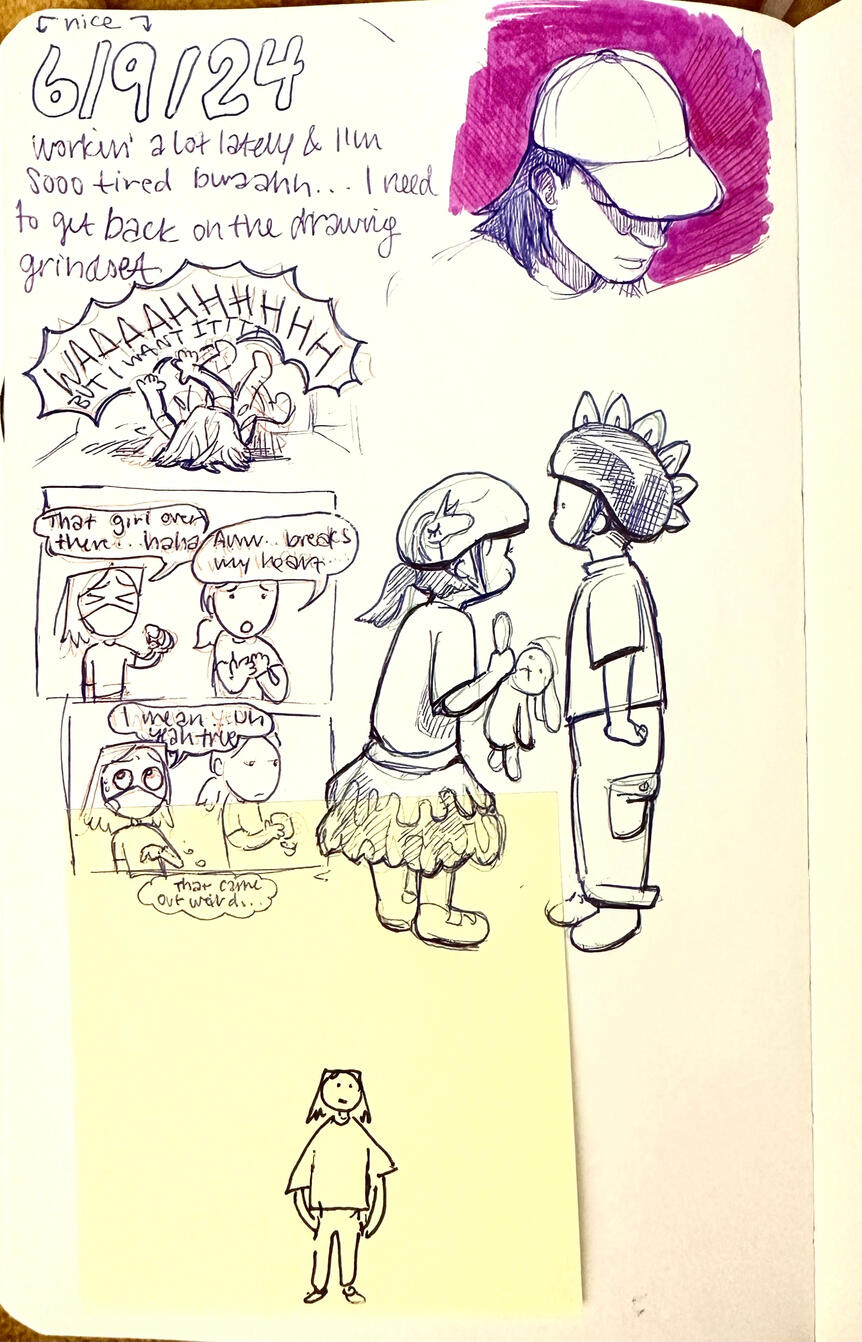 nice
6/9/24
workin' a lot lately & I'm
Sooo tired bwaahh... I need
to get back on the drawing
grindset
WAAAAHHHHHHH
BUT I WANT ITTTT
That girl over
there... haha
Aww.. breaks
my heart...
I mean yeah
yeah true
That came
out weird...